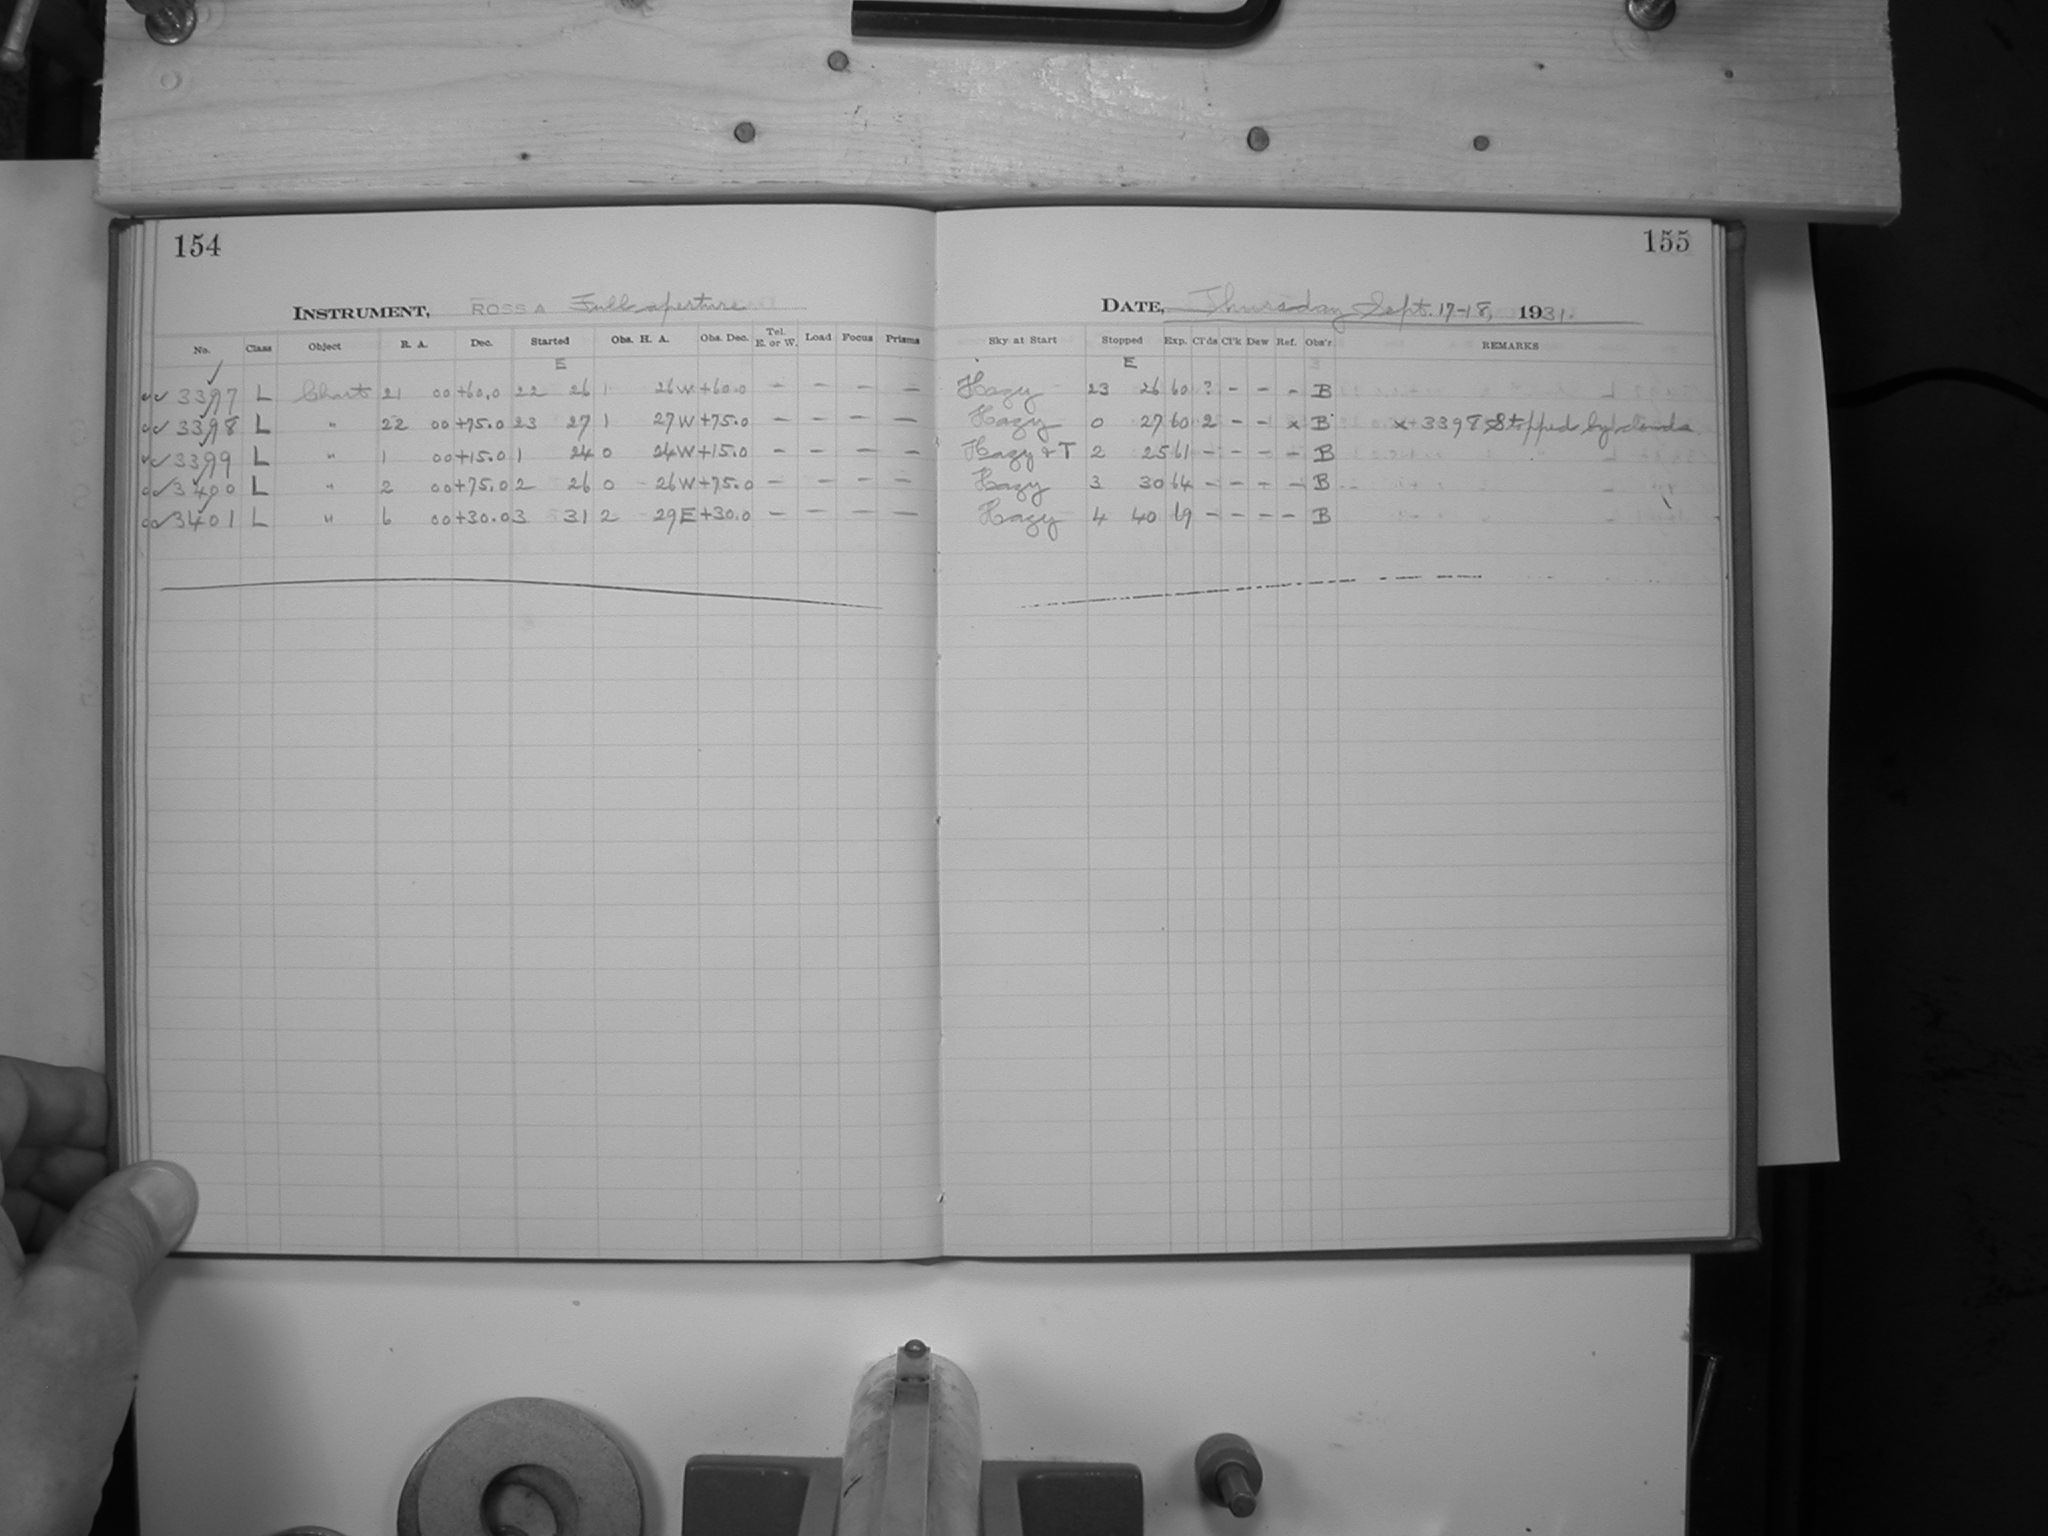 154
INSTRUMENT, ROSS A Full aperture
No. Class Object R. A. Dec. Started Obs. H. A. Obs. Dec. Tel. E. or W. Load Focus Prisms
E
3397 L Chart 21 00 +60.0 22 26 1 26 W +60.0 - - - -
3398 L " 22 00 +75.0 23 27 1 27 W +75.0 - - - -
3399 L " 1 00 +15.0 1 24 0 24 W +15.0 - - - -
3400 L " 2 00 +75.0 2 26 0 26 W +75.0 - - - -
3401 L " 6 00 +30.0 3 31 2 29 E +30.0 - - - -
155
DATE, Thursday Sept. 17-18, 1931.
Sky at Start Stopped Exp. Cl'ds Cl'k Dew Ref. Obs'r REMARKS
E
Hazy 23 26 60 ? - - - B
Hazy 0 27 60 2 - - x B x 3398 Stopped by clouds
Hazy & T 2 25 61 - - - - B
Hazy 3 30 64 - - - - B
Hazy 4 40 69 - - - - B